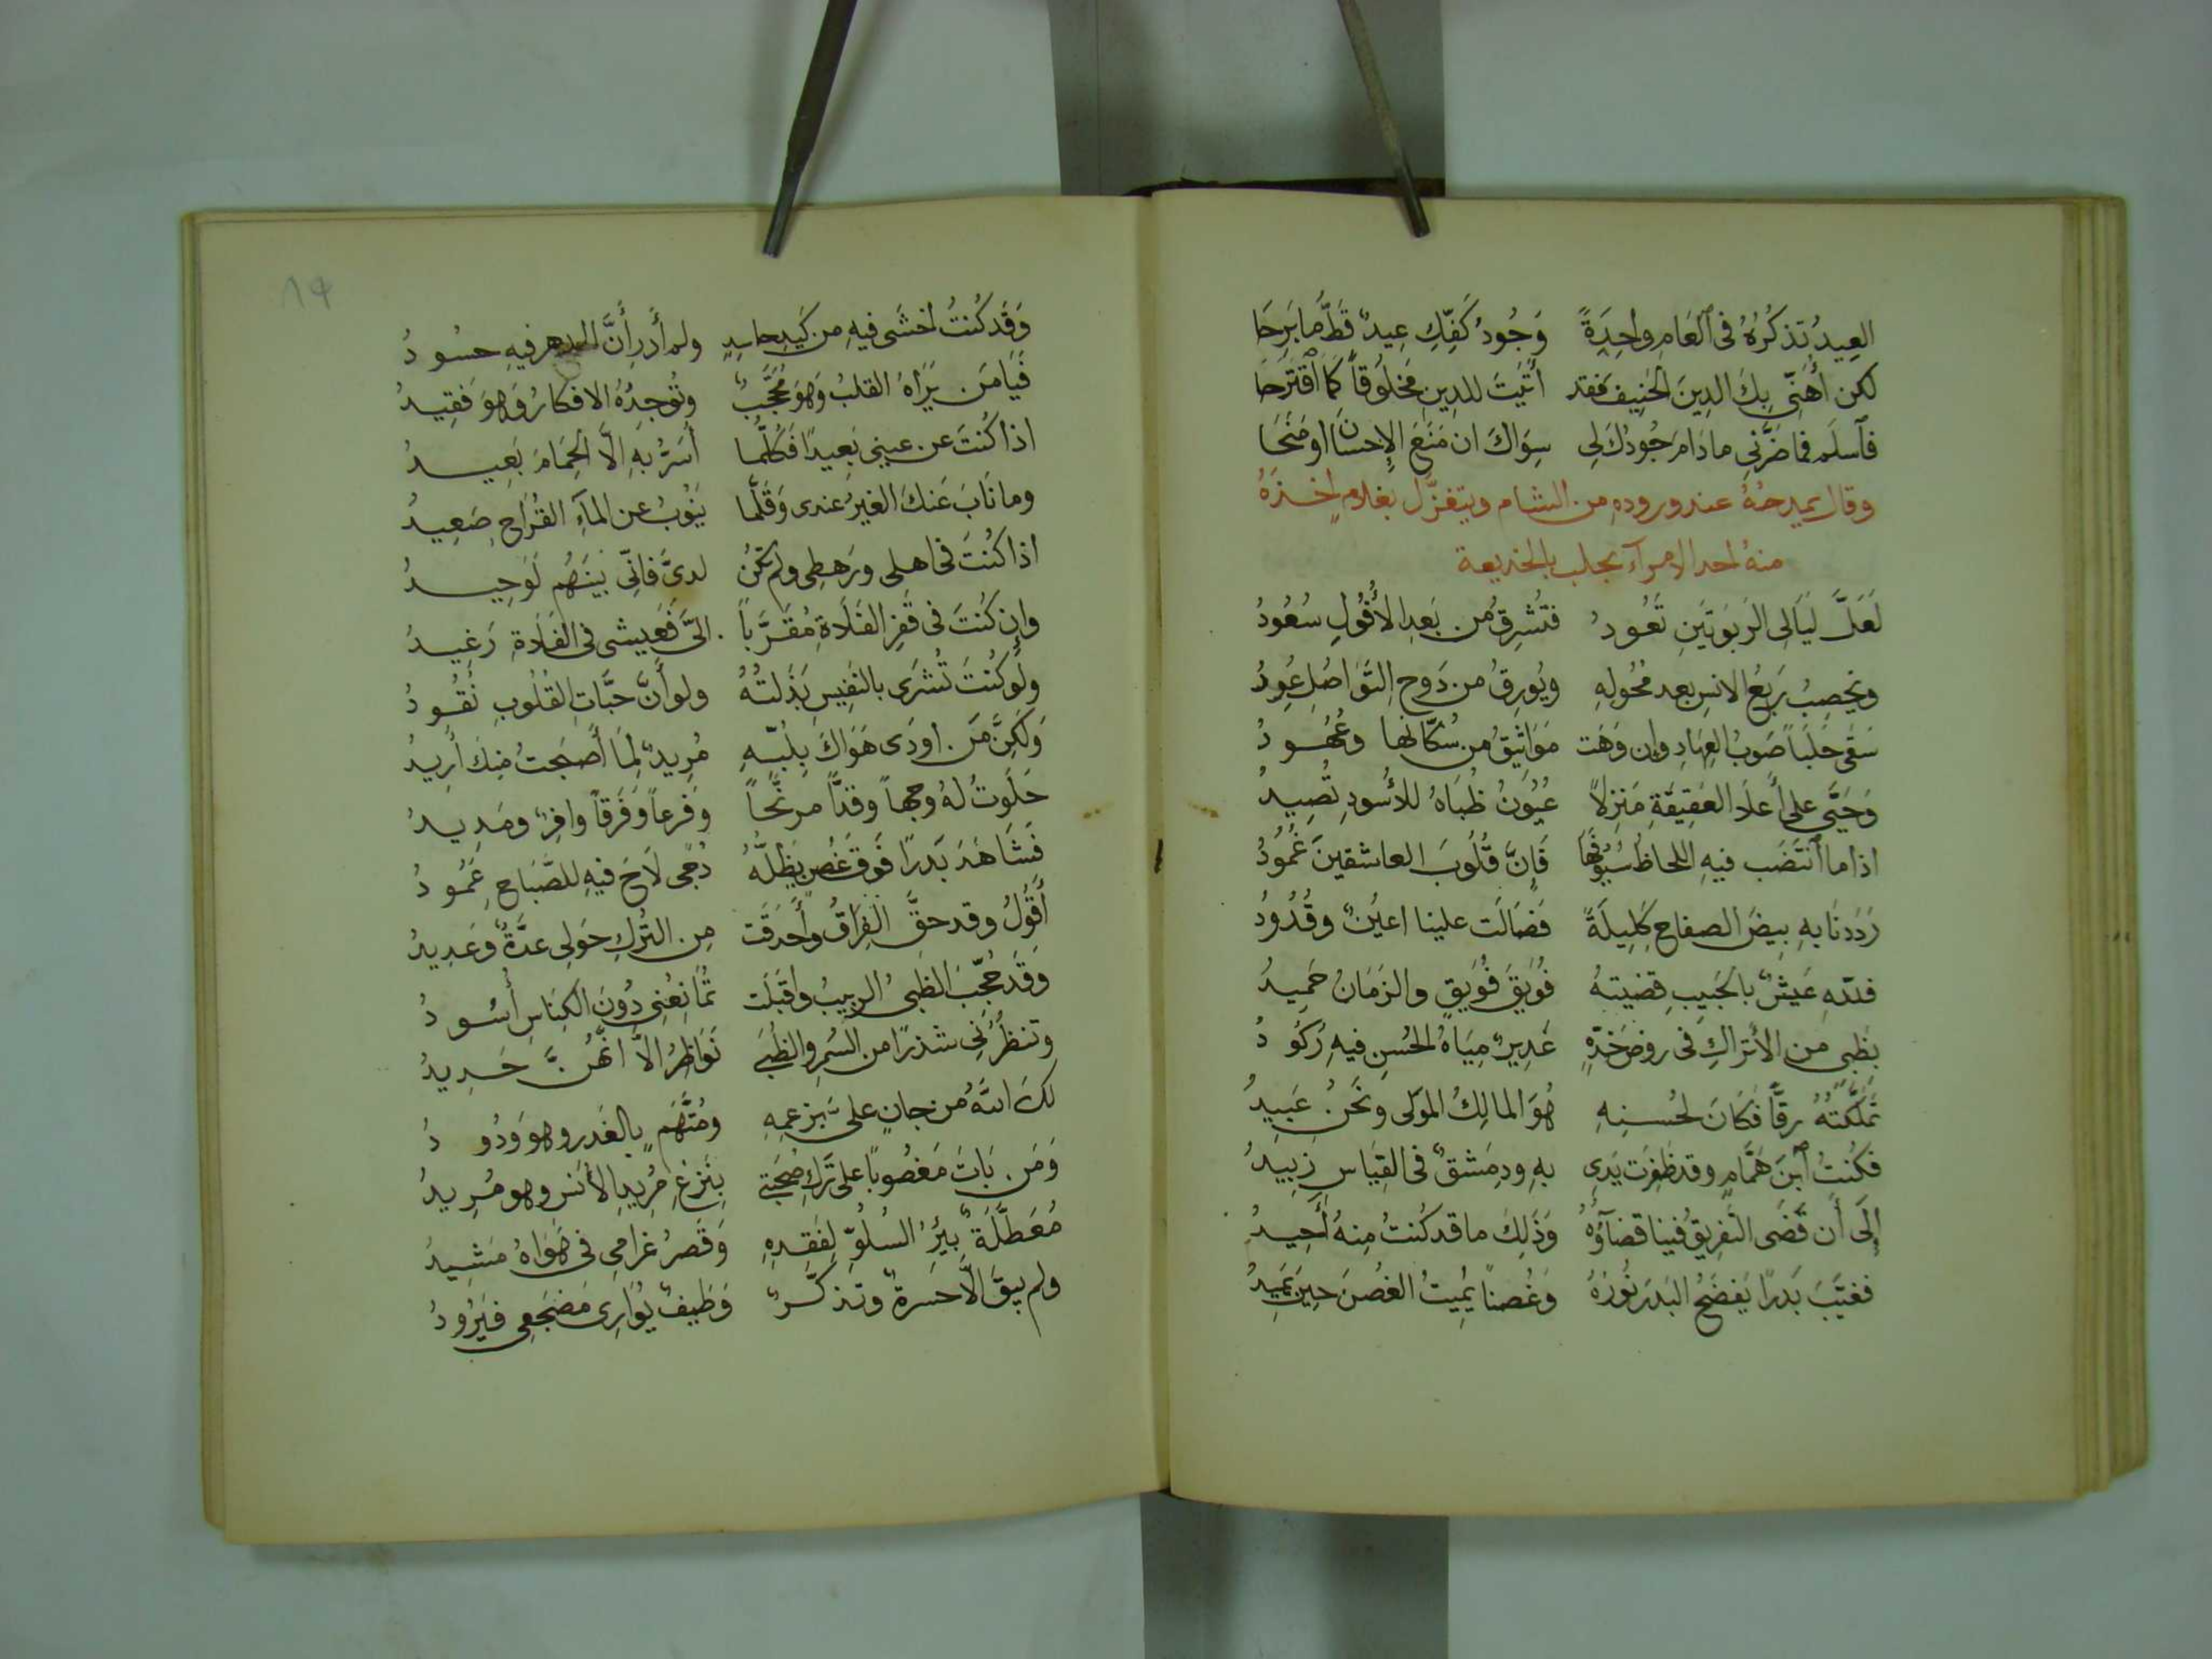 العِيدُ تَذكُرُهُ فى ٱلعَامِ واحِدَةً وَجُودُ كَفِّكِ عِيدٌ قَطُّ مَا بَرِحَا
لكن أُهَنِّى بِكَ الدِينَ الحَنِيفَ فَقَد أتَيتَ للدِينِ مَخلُوقاً كَمَا ٱقتَرَحَا
فَٱسلَم فما ضَرَّنِى مادَامَ جُودُكَ لِى سِوَاكَ ان مَنَعَ الإِحسَانَ اومَنَحَا
وقال يمدحهُ عند ورودهِ من الشام ويتغزّل بغلامٍ اخذهُ
منهُ احد الامرآء بحلب بالخديعة
لَعَلَّ لَيَالِى الرَبوَتَينِ تَعُودُ فَتُشرِقُ مِن بَعدِ الأُفُولِ سُعُودُ
ويُخصِبُ رَبعُ الانسِ بعد مُحُولِهِ ويُورِقُ من دَوحِ التَوَاصُلِ عُودُ
سَقَى حَلَباً صَوبُ العِهَادِ وإن وَهَت مَوَاثِيقُ من سُكَّانِها وعُهُودُ
وَحَيَّى على أَعلَا العَقِيقَةِ مَنزِلاً عُيُونُ ظُبَاهُ للأُسُودِ تُصِيدُ
اذا ما ٱنتَضَت فيهِ اللحَاظُ سُيُوفَهَا فَإِنَّ قُلُوبَ العاشقينَ غُمُودُ
رَدَدنَا بهِ بِيضَ الصفاحِ كَلِيلَةً فَصَالَت علينا اعيُنٌ وقُدُودُ
فلله عَيشٌ بالحَبِيبِ قضيتهُ فُوَيقَ قُوَيقٍ والزَمَانُ حَمِيدُ
بِظَبىٍ من الأَتراكِ فى روضِ خَدِّهِ غَدِيرٌ مِيَاهُ الحُسنِ فيهِ رُكُودُ
تَمَلَّكتُهُ رِقًّا فكَانَ لحُسنِهِ هُوَ المالِكُ المولَى ونَحنُ عَبِيدُ
فكُنتُ ٱبنَ هَمَّامٍ وقد ظَفِرَت يَدِى بهِ ودِمَشقٌ فى القِيَاسِ زَبِيدُ
إِلَى أَن قَضَى التَفرِيقُ فينا قضآؤُهُ وَذَلِكَ ما قد كُنتُ مِنهُ أَحِيدُ
فغيَّبَ بَدرًا يَفضَحُ البَدرَ نُورُهُ وَغُصناً يُمِيتُ الغُصنَ حِينَ يَمِيدُ
وَقَد كُنتُ اخشَى فيهِ من كَيدِ حاسِدٍ ولم أَدرِ أَنَّ الدهر فيهِ حسُودُ
فَيَا مَن يَرَاهُ القلبُ وَهوَ مُحَجَّبٌ وتُوجِدُهُ الافكارُ وهوَ فَقِيدُ
اذا كنتَ عن عيني بَعِيدًا فَكُلَّمَا أُسَرُّ بهِ الّا الحِمَامَ بَعِيدُ
وما نَابَ عَنكَ الغيرُ عندى وَقَلَّمَا يَنُوبُ عن المآءِ القُرَاحِ صَعِيدُ
اذا كُنتَ فى اهلى ورَهطِى ولم تَكُن لدىَّ فانِّى بَينَهُم لَوَحِيدُ
وإن كُنتَ فى قَفرِ الفَلَاةِ مُقَرَّباً الىَّ فَعَيشى فى الفَلَاةِ رَغِيدُ
ولَو كُنتَ تُشرَى بالنفِيسِ بَذَلتُهُ ولو أَنَّ حَبَّاتِ القُلُوبِ نُقُودُ
وَلَكِنَّ مَن اودَى هَوَاكَ بِلُبّهِ مُرِيدٌ لِمَا أَصبَحتُ مِنكَ أُرِيدُ
جَلَوتُ لهُ وجهاً وقدًّا مرنَّحاً وَفَرعاً وَفَرقاً وافِرٌ ومَدِيدُ
فَشَاهَدَ بَدرًا فَوقَ غُصنٍ يَظلُّهُ دُجًى لَاحَ فيهِ للصَّبَاحِ عَمُودُ
أَقُولُ وقد حَقَّ الفِرَاقُ وأَحدَقَت مِن التُركِ حَولِى عدَّةٌ وعَدِيدُ
وَقَد حُجِّبَ الظبىُ الرَبِيبُ واقبَلَت تُمَانِعُنِى دُونَ الكِنَاسِ أُسُودُ
وتنظُرُنِى شذرًا من السُمرِ والظُبَى نَوَاظِرُ الَّا انَّهُنَّ حَدِيدُ
لكَ اللهُ من جانٍ علىَّ بزعمِهِ ومُتَّهَمٍ بالغَدرِ وهو وَدُودُ
وَمَن بَاتَ مَغصُوبًا على تَركِ صُحبَتِى بِنَزغِ مُرِيدِ الأَنس وهو مُرِيدُ
مُعَطَّلَةٌ بِئرُ السُلُوِّ لِفَقدِهِ وَقَصرُ غرامِى فى هَوَاهُ مَشِيدُ
ولم يبقَ الَّا حَسرةٌ وتذكُّرٌ وَطَيفٌ يُوَارِى مَضجَعِى فيَزُودُ